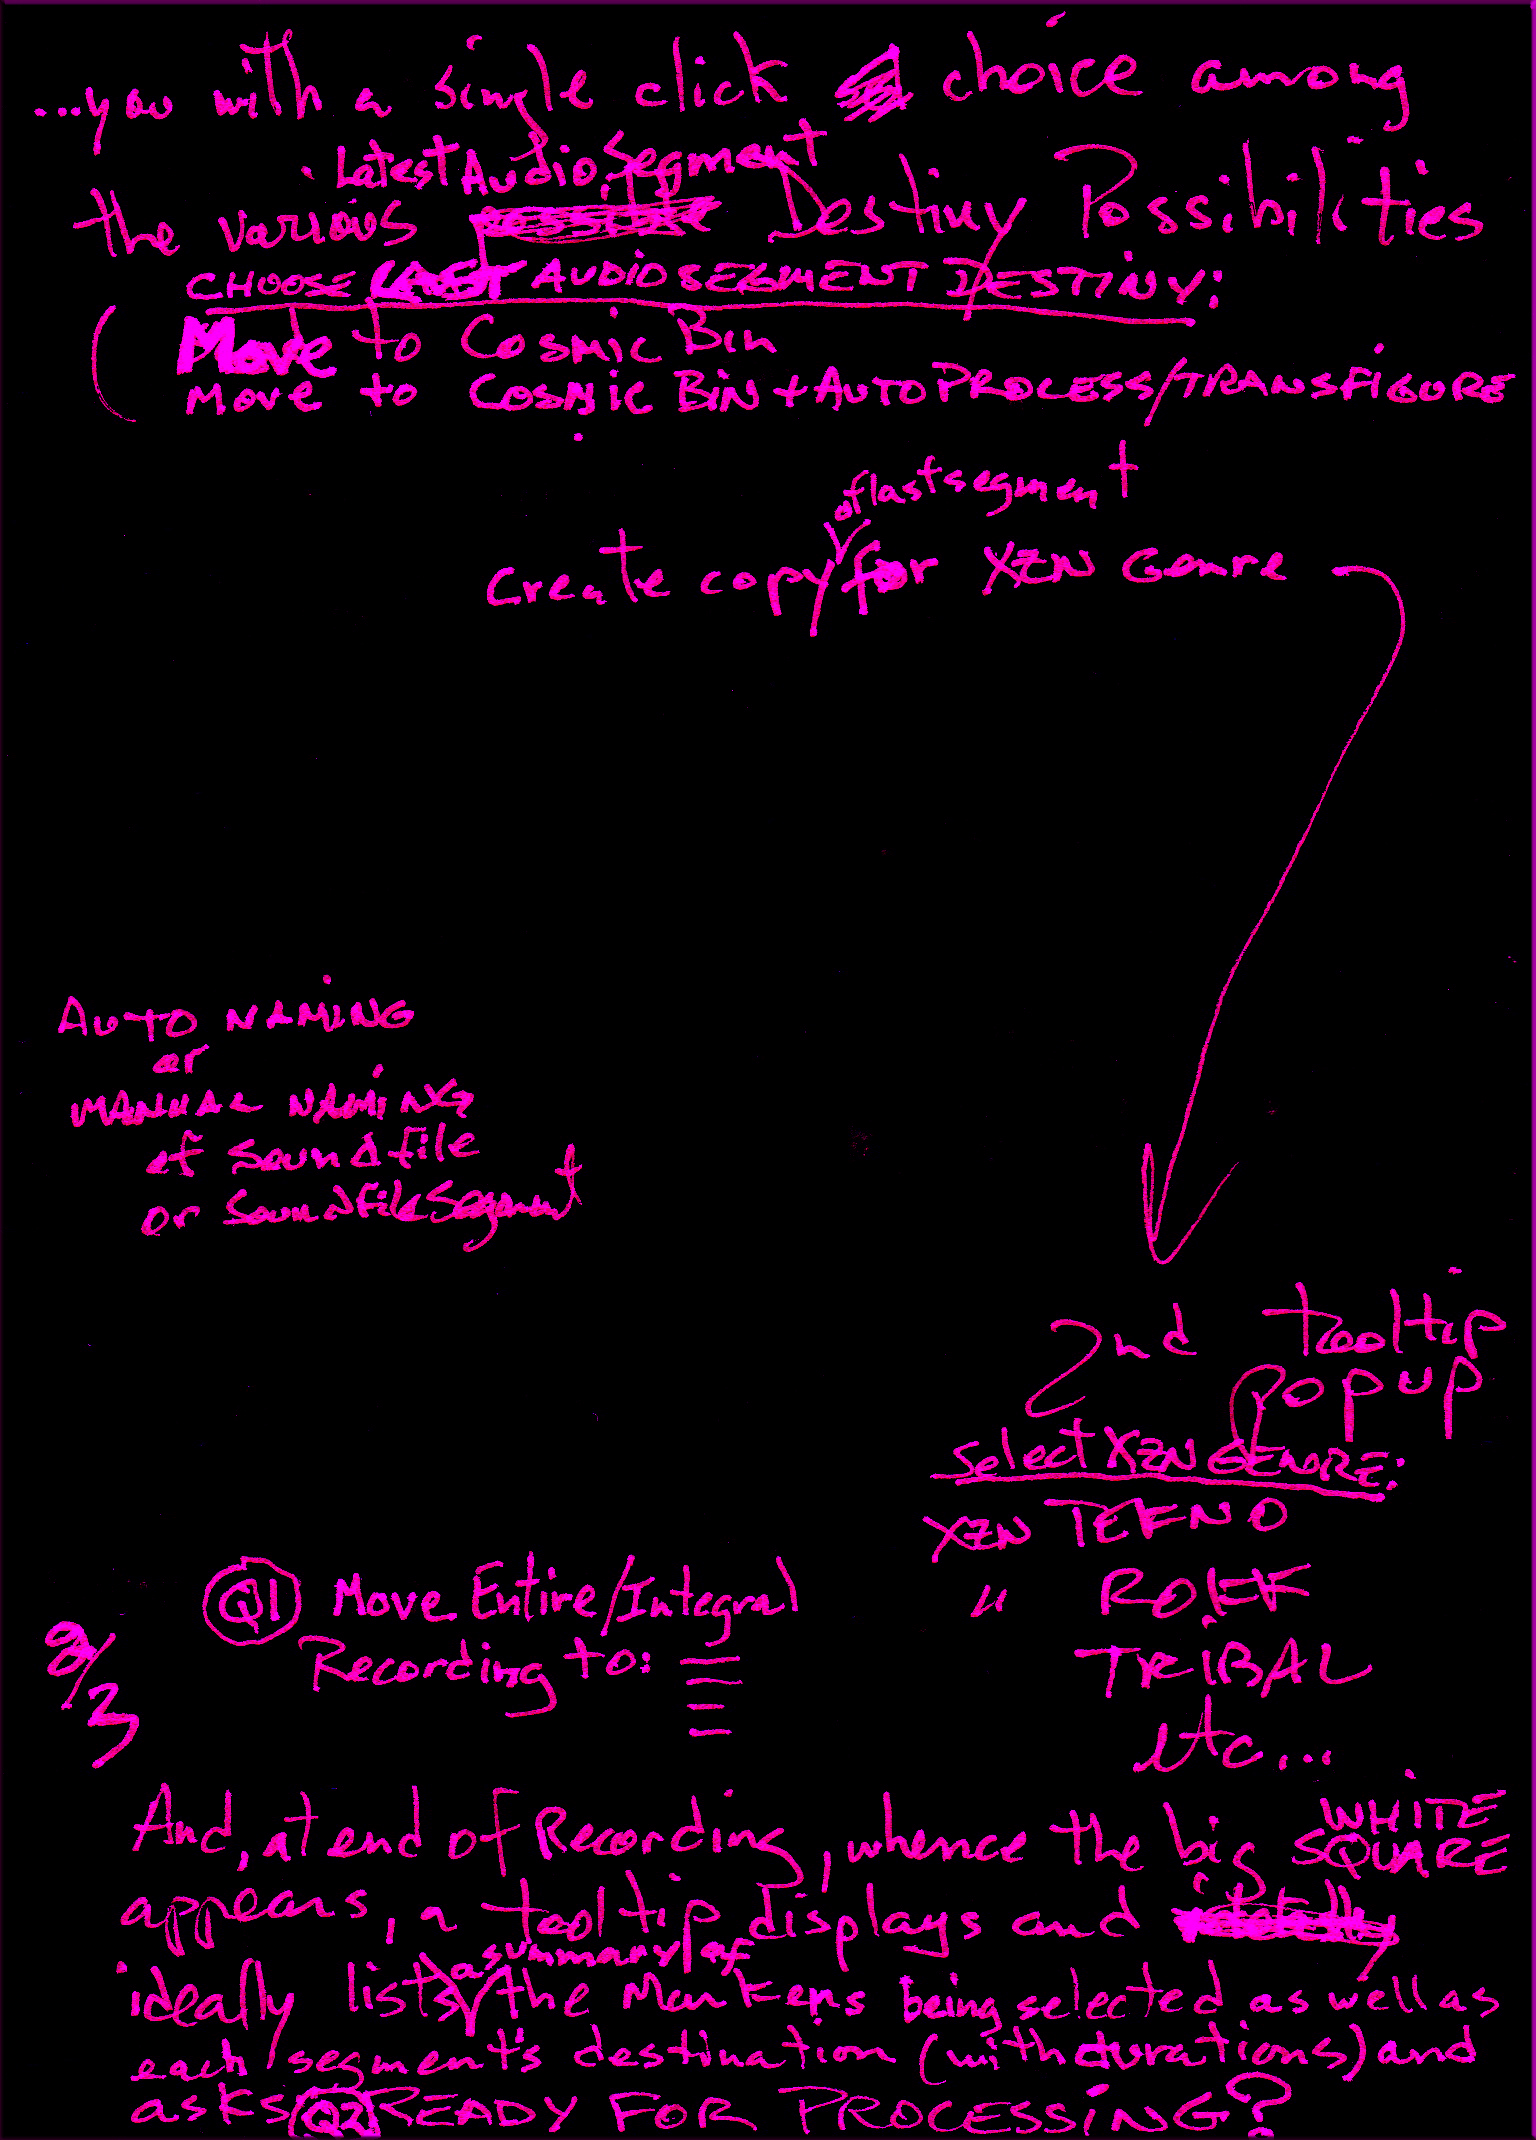 ...you with a single click choice among
Latest Audio Segment
the various Destiny Possibilities
CHOOSE LAST AUDIO SEGMENT DESTINY:
( Move to Cosmic Bin
Move to COSMIC BIN + AUTO PROCESS/TRANSFIGURE
of last segment
Create copy for XZN Genre
AUTO NAMING
or
MANUAL NAMING
of soundfile
or SoundfileSegment
2nd tooltip
popup
Select XZN GENRE:
XZN TEKNO
" ROKK
TRIBAL
etc...
Q1 Move Entire/Integral
Recording to:
2/3
And, at end of Recording, whence the big WHITE
SQUARE
appears, a tooltip displays and
ideally lists a summary of the Markers being selected as well as
each segment's destination (with durations) and
asks Q2 READY FOR PROCESSING?